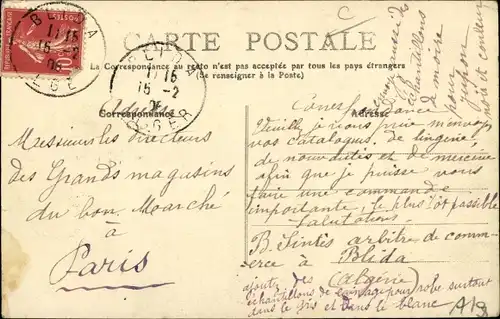 CARTE POSTALE
La Correspondance au recto n'est pas acceptée par tous les pays étrangers
(Se renseigner à la Poste)
Correspondance
Adresse
BLIDA
11 15
15 -2
ALGER
Adresse
Messieurs les directeurs
des Grands magasins
du bon Marché
à
Paris
Veuillez je vous prie m'envoyer
vos catalogues de lingerie,
de nouveautés et de
afin que je puisse vous
faire une commande
importante, le plus tôt possible
Salutations
B. Sintès arbitre de comm-
erce à Blida
(Algérie)
ajoutez des
échantillons de lainage pour robe surtout
dans le gris et dans le blanc
aussi
échantillons
de moire
pour
jupon
noir et couleur